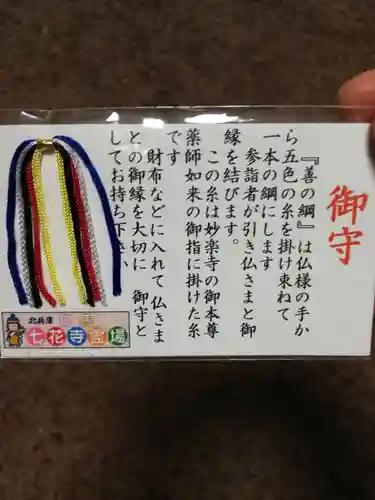 御守
『善の綱』は仏様の手か
ら五色の糸を掛け束ねて
一本の綱にします
参詣者が引き仏さまと御
縁を結びます。
この糸は妙楽寺の御本尊
薬師如来の御指に掛けた糸
です
財布などに入れて仏さま
との御縁を大切に　御守と
してお持ち下さい
北兵庫
七花寺霊場